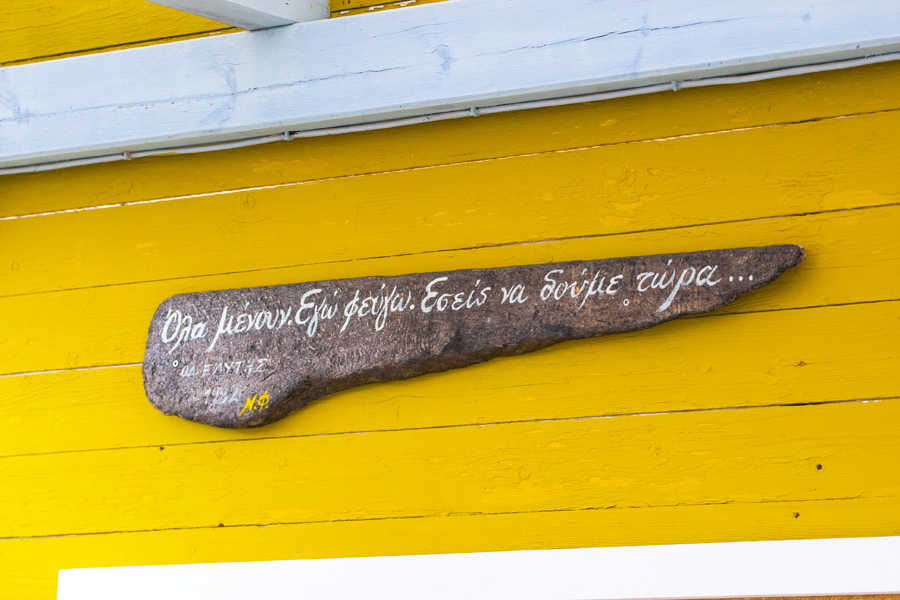 Όλα μένουν. Εγώ φεύγω. Εσείς να δούμε τώρα...
ΟΔ. ΕΛΥΤΗΣ
Ν.Φ.